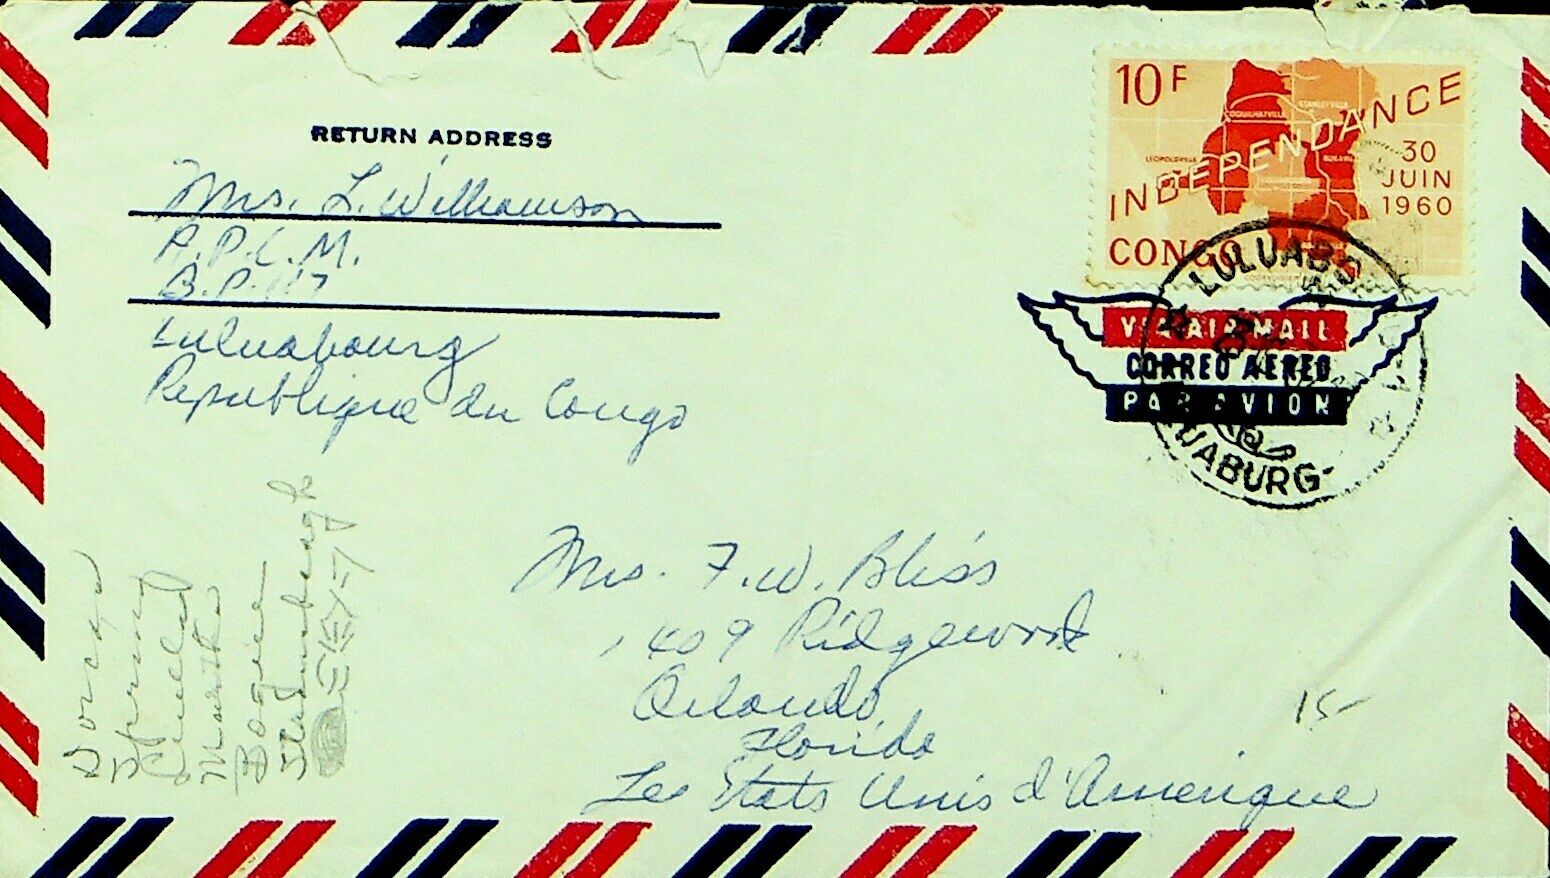 RETURN ADDRESS
Mrs. L. Williamson
A.P.C.M.
B.P. 117
Luluabourg
Republique du Congo
10 F
INDEPENDANCE
30
JUIN
1960
CONGO
COQUILHATVILLE
STANLEYVILLE
LEOPOLDVILLE
VIA AIR MAIL
CORREO AEREO
PAR AVION
LULUABO
LUABURG
Mrs. F. W. Bliss
1409 Ridgewood
Orlando,
Florida
Les Etats Unis d'Amerique
15-
Dorcas
Spring
Martha